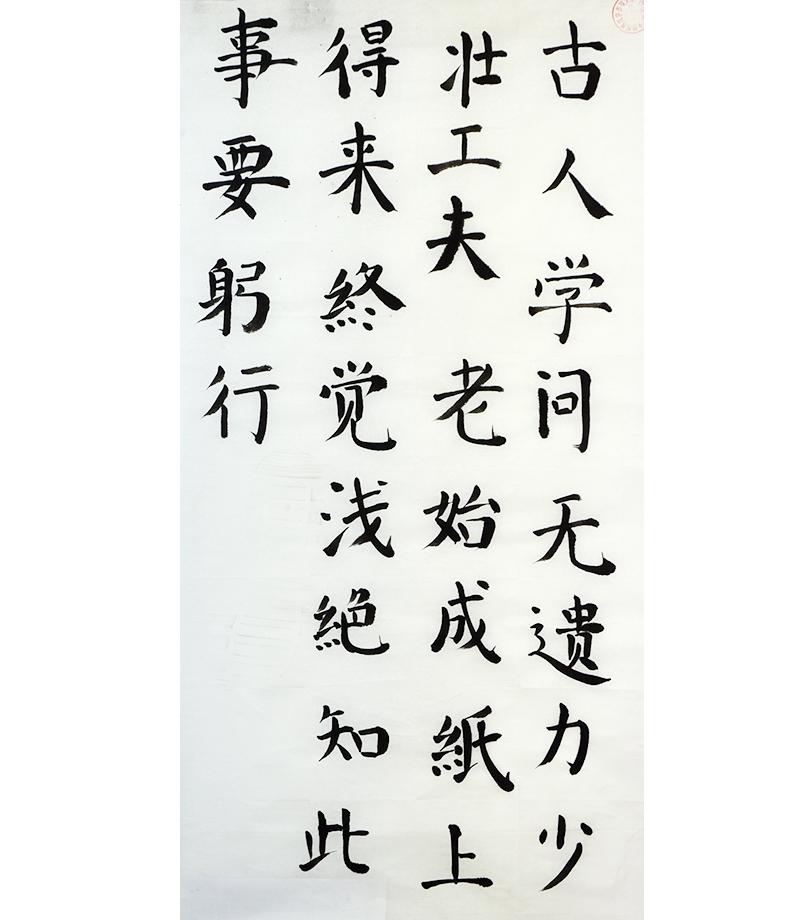 古人学问无遗力少
壮工夫老始成紙上
得来終觉浅絶知此
事要躬行